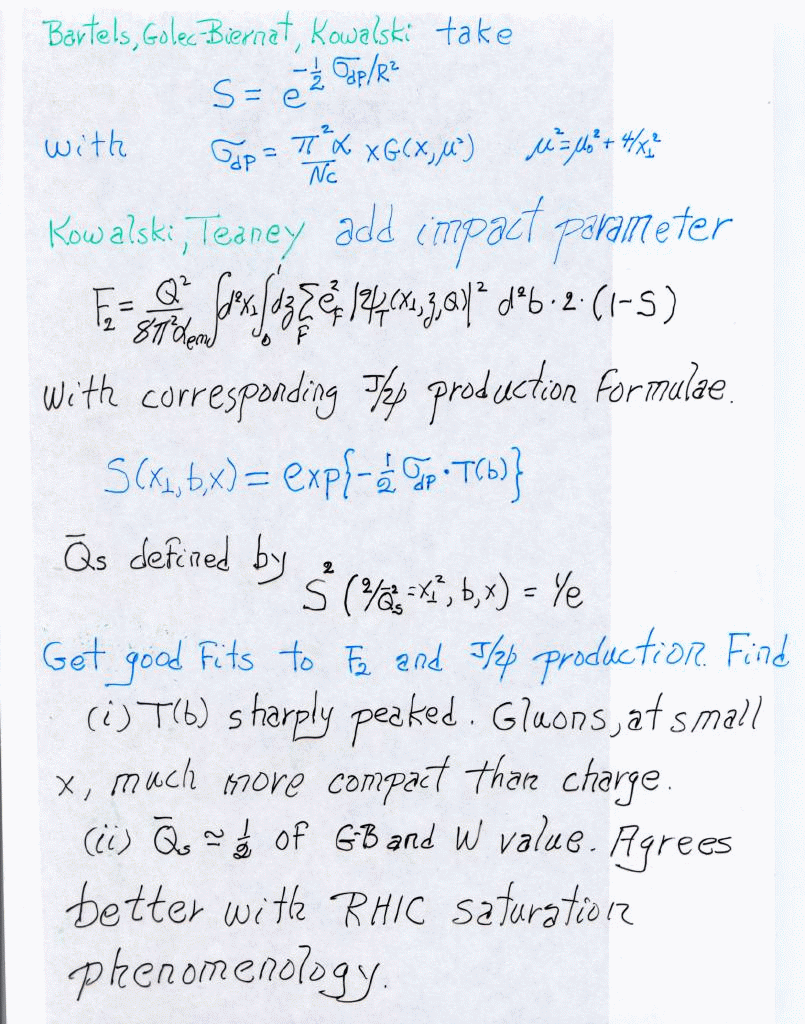 Bartels, Golec-Biernat, Kowalski take
S = e^{-½ σ_dp/R²}
with σ_dp = π²α/Nc xG(x,μ²) μ²=μ₀²+4/x⊥²
Kowalski, Teaney add impact parameter
F₂ = Q²/8π²α_em ∫d²x⊥ ∫₀¹ dz Σ_F e_F² |ψ_T(x⊥,z,Q)|² d²b·2·(1-S)
with corresponding J/ψ production formulae.
S(x⊥,b,x) = exp{-½ σ_dp·T(b)}
Q̄s defined by S²(2/Q̄s²=x⊥², b,x) = 1/e
Get good fits to F₂ and J/ψ production. Find
(i) T(b) sharply peaked. Gluons, at small
x, much more compact than charge.
(ii) Q̄s ≃ ½ of G-B and W value. Agrees
better with RHIC saturation
phenomenology.